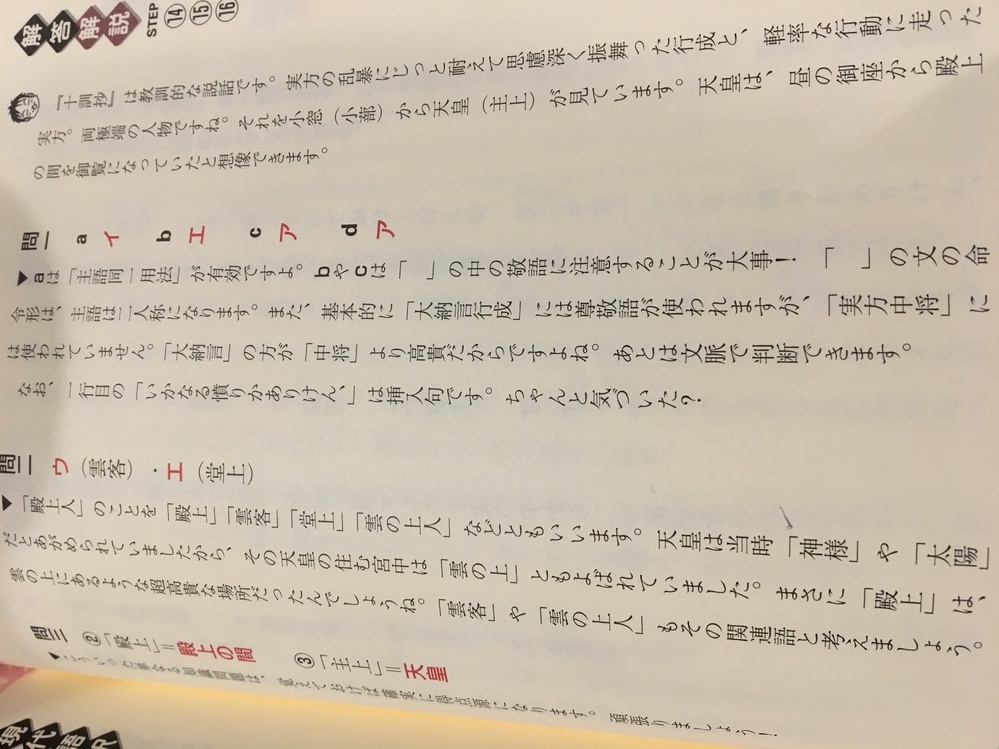 解答解説 STEP ⑭ ⑮ ⑯
『十訓抄』は教訓的な説話です。実方の乱暴にじっと耐えて思慮深く振舞った行成と、軽率な行動に走った
実方。両極端の人物ですね。それを小窓(小蔀)から天皇(主上)が見ています。天皇は、昼の御座から殿上
の間を御覧になっていたと想像できます。
問一 a イ b エ c ア d ア
▼aは「主語同一用法」が有効ですよ。bやcは「 」の中の敬語に注意することが大事! 「 」の文の命
令形は、主語は二人称になります。また、基本的に「大納言行成」には尊敬語が使われますが、「実方中将」に
は使われていません。「大納言」の方が「中将」より高貴だからですよね。あとは文脈で判断できます。
なお、一行目の「いかなる憤りかありけん、」は挿入句です。ちゃんと気づいた?
問二 ウ(雲客)・エ(堂上)
▼「殿上人」のことを「殿上」「雲客」「堂上」「雲の上人」などともいいます。天皇は当時「神様」や「太陽」
だとあがめられていましたから、その天皇の住む宮中は「雲の上」ともよばれていました。まさに「殿上」は、
雲の上にあるような超高貴な場所だったんでしょうね。「雲客」や「雲の上人」もその関連語と考えましょう。
問三 ②「殿上」=殿上の間 ③「主上」=天皇
▼こういった単なる知識問題は、覚えておけば確実に得点源になります。頑張りましょう!
現代語訳